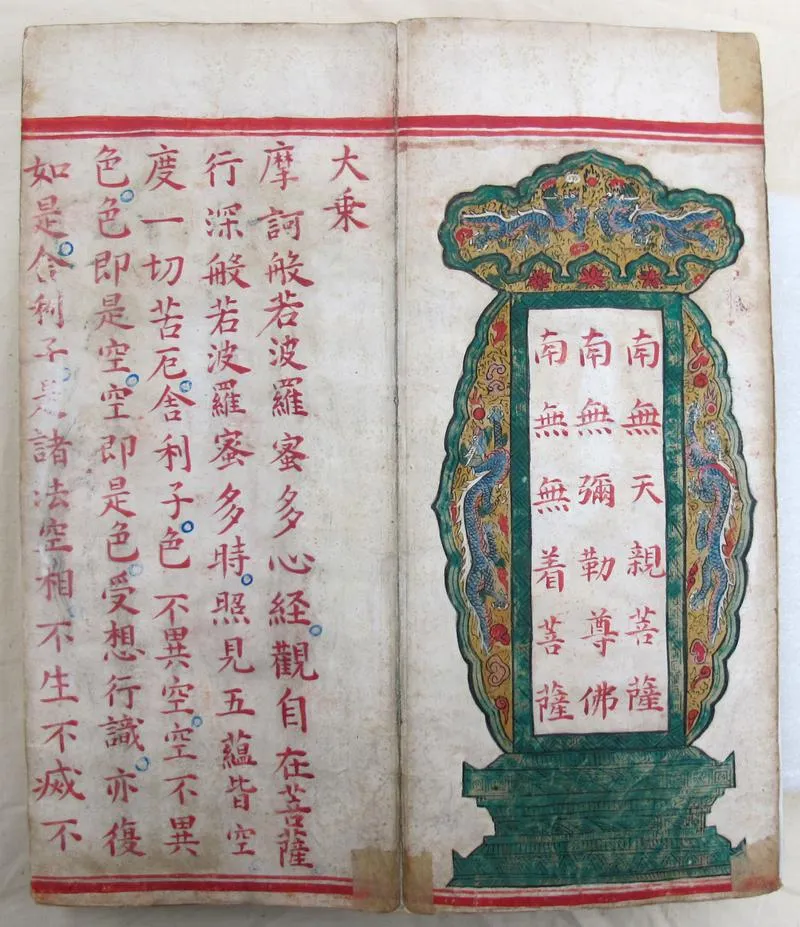 南無天親菩薩
南無彌勒尊佛
南無無着菩薩
大乗
摩訶般若波羅蜜多心経觀自在菩薩
行深般若波羅蜜多時照見五蘊皆空
度一切苦厄舎利子色不異空空不異
色色即是空空即是色受想行識亦復
如是舎利子是諸法空相不生不滅不